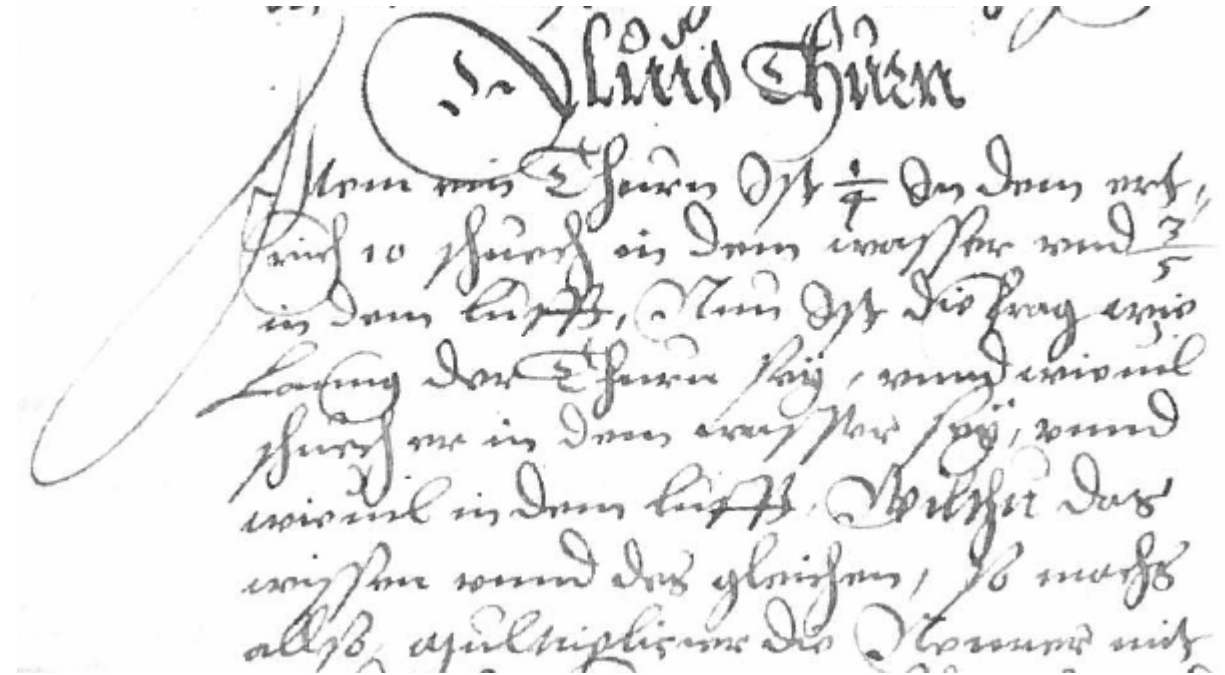 Thurn
Item ein Thurn Ist 1/4 In dem ert,
rich 10 schuech in dem wasser vnd 3/5
in dem lufft, Nun Ist die frag wie
Lanng der Thurn seÿ, vnnd wieuil
schuech er in dem wasser seÿ, vnnd
wieuil in dem lufft, Wilthu das
wissen vnnd des gleichen, so machs
allso, Multiplicier die Nenner mit